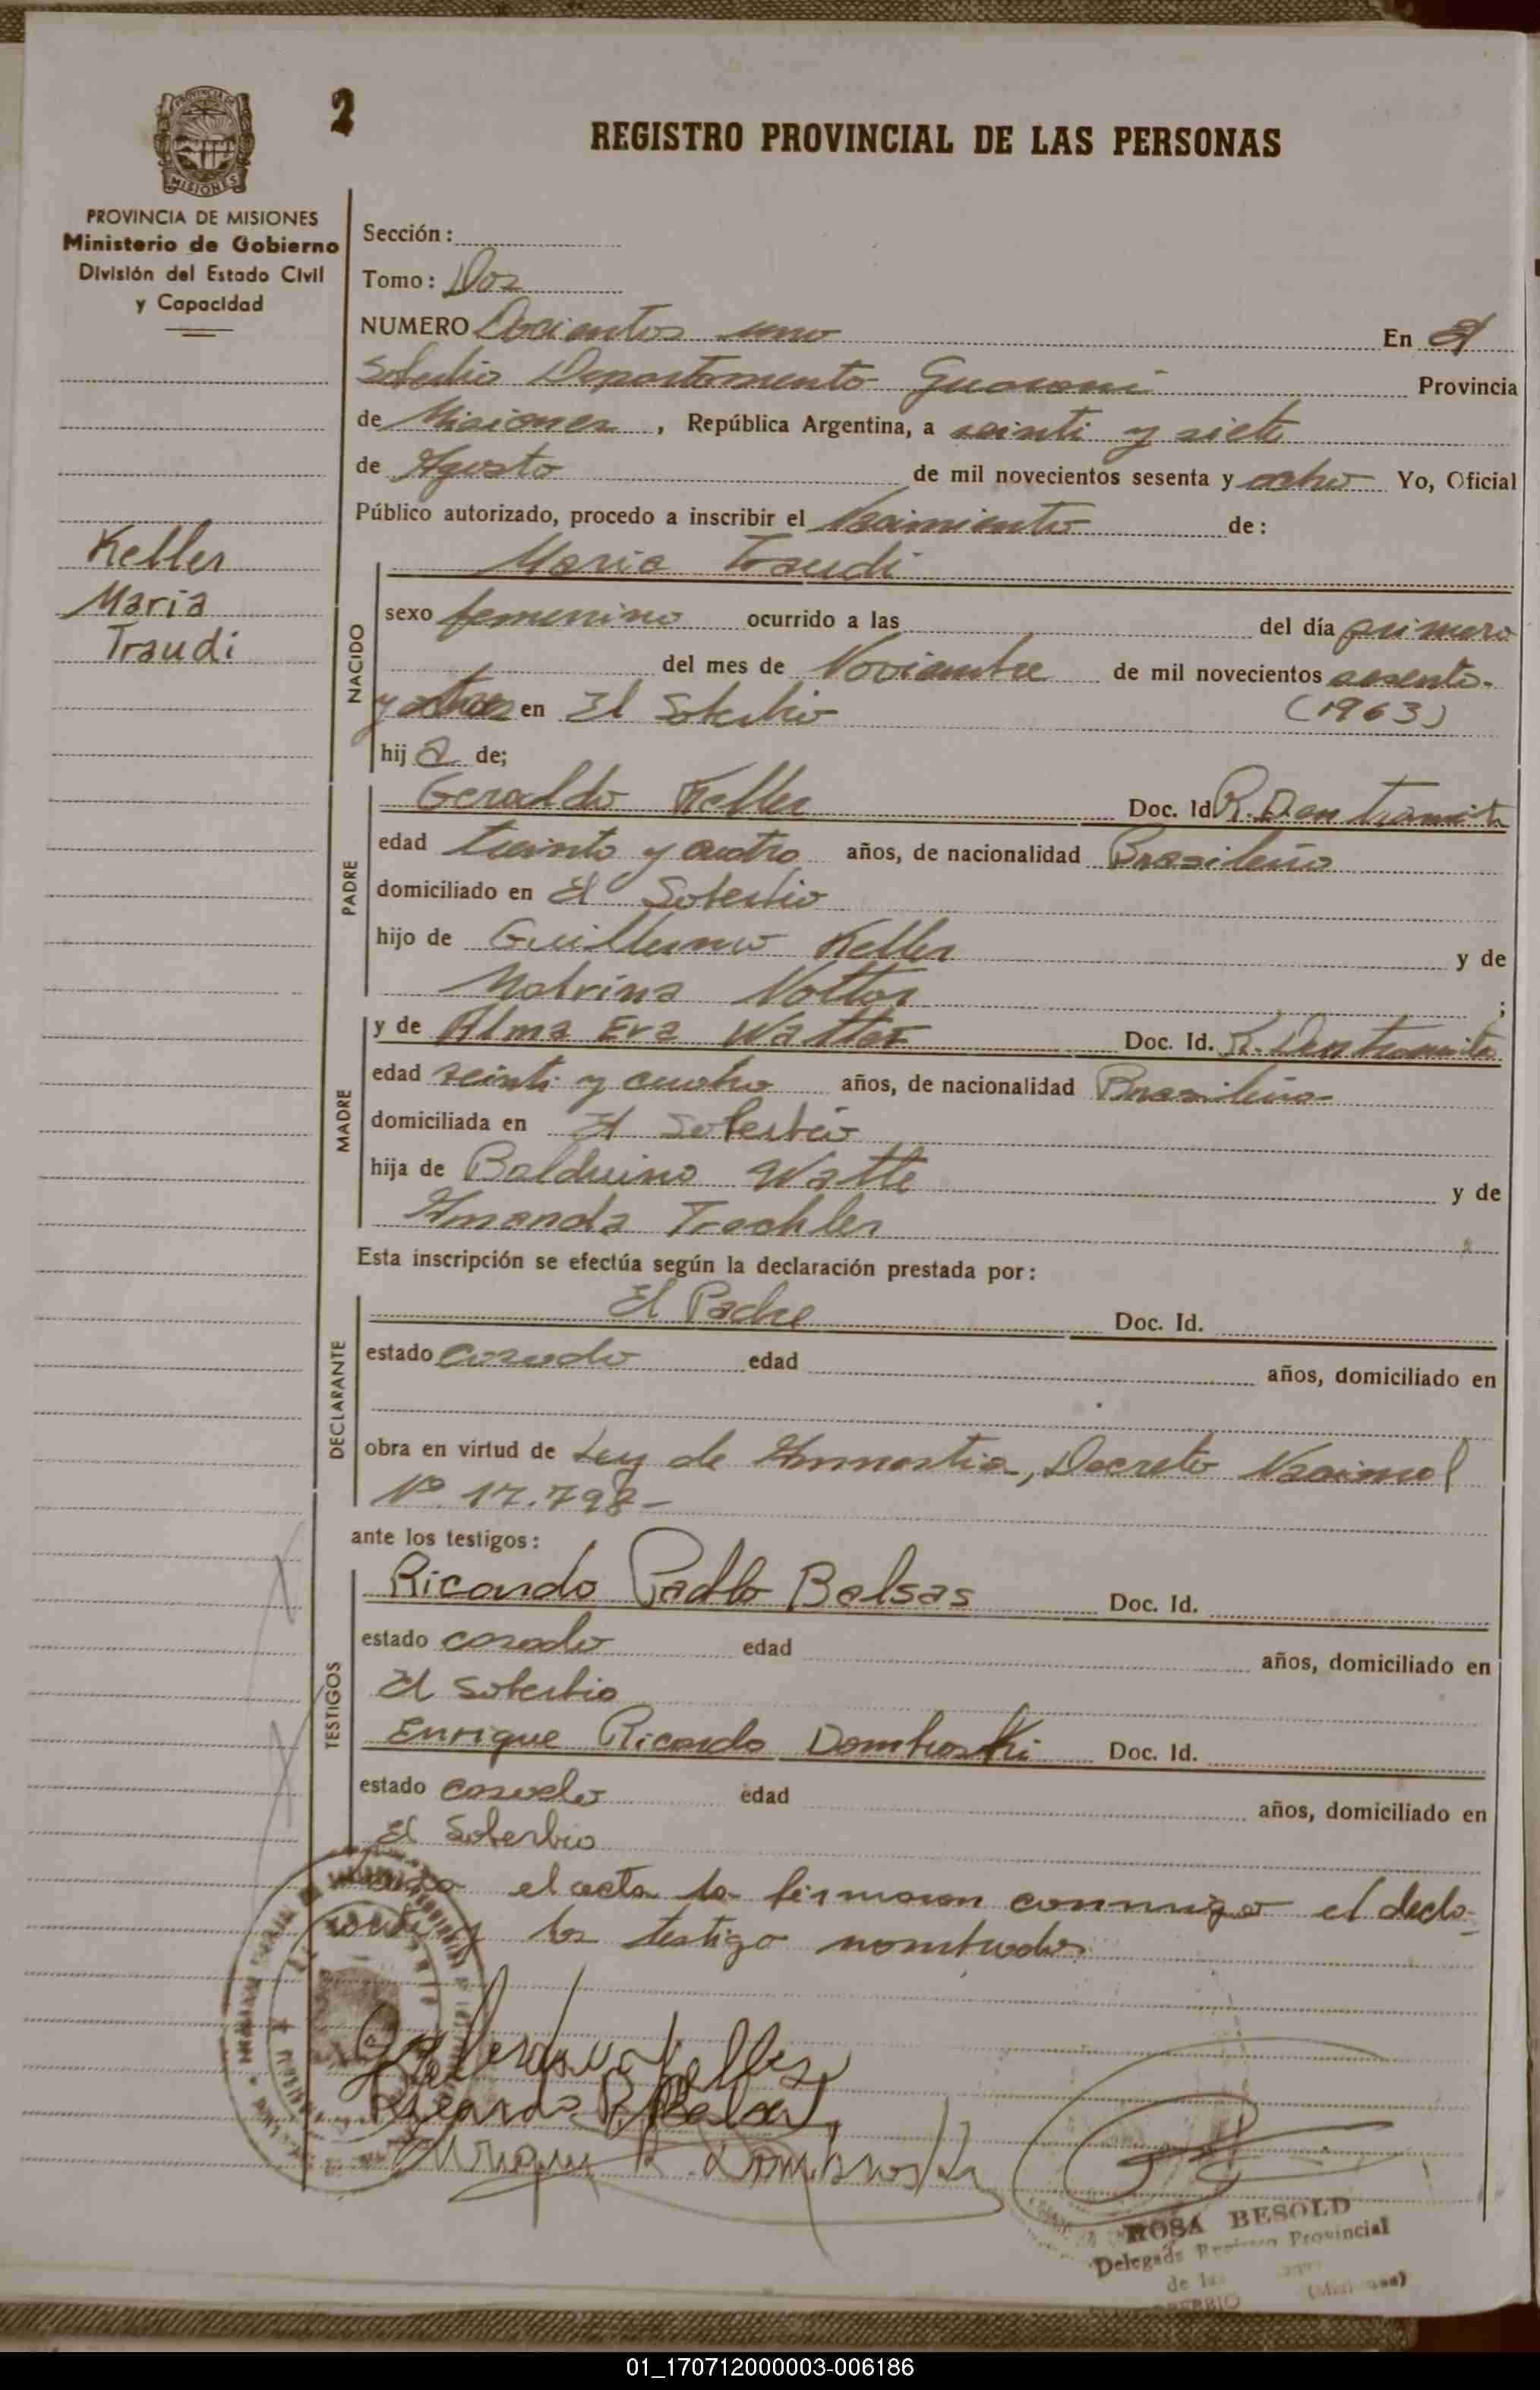 2
REGISTRO PROVINCIAL DE LAS PERSONAS
PROVINCIA DE
MISIONES
PROVINCIA DE MISIONES
Ministerio de Gobierno
División del Estado Civil
y Capacidad
Keller
Maria
Traudi
Sección:
Tomo: Dos
NUMERO Docientos uno En El
Soberbio Departamento Guarani Provincia
de Misiones, República Argentina, a veinti y siete
de Agosto de mil novecientos sesenta y ocho Yo, Oficial
Público autorizado, procedo a inscribir el Nacimiento de:
Maria Traudi
NACIDO
sexo femenino ocurrido a las del día primero
del mes de Noviembre de mil novecientos sesenta-
y tres en El Soberbio (1963)
hij a de;
PADRE
Geraldo Keller Doc. Id. R. D en tramite
edad treinta y cuatro años, de nacionalidad Brasileña
domiciliado en El Soberbio
hijo de Guillermo Keller y de
Malvina Nottar ;
MADRE
y de Alma Eva Watter Doc. Id. R. D en tramite
edad veinti y cuatro años, de nacionalidad Brasileña
domiciliada en El Soberbio
hija de Balduino Watte y de
Amanda Trachler
Esta inscripción se efectúa según la declaración prestada por:
DECLARANTE
El Padre Doc. Id.
estado casado edad años, domiciliado en
obra en virtud de Ley de Amnestia, Decreto Nacional
Nº 17.798-
ante los testigos:
TESTIGOS
Ricardo Pablo Balsas Doc. Id.
estado casado edad años, domiciliado en
El Soberbio
Enrique Ricardo Dombroski Doc. Id.
estado casado edad años, domiciliado en
El Soberbio
el acta la firmaron conmigo el decla-
rante y los testigo nombrados
Keller
Ricardo P. Balsas
Enrique R. Dombroski
ROSA BESOLD
Delegada Registro Provincial
de las
(Misiones)
01_170712000003-006186